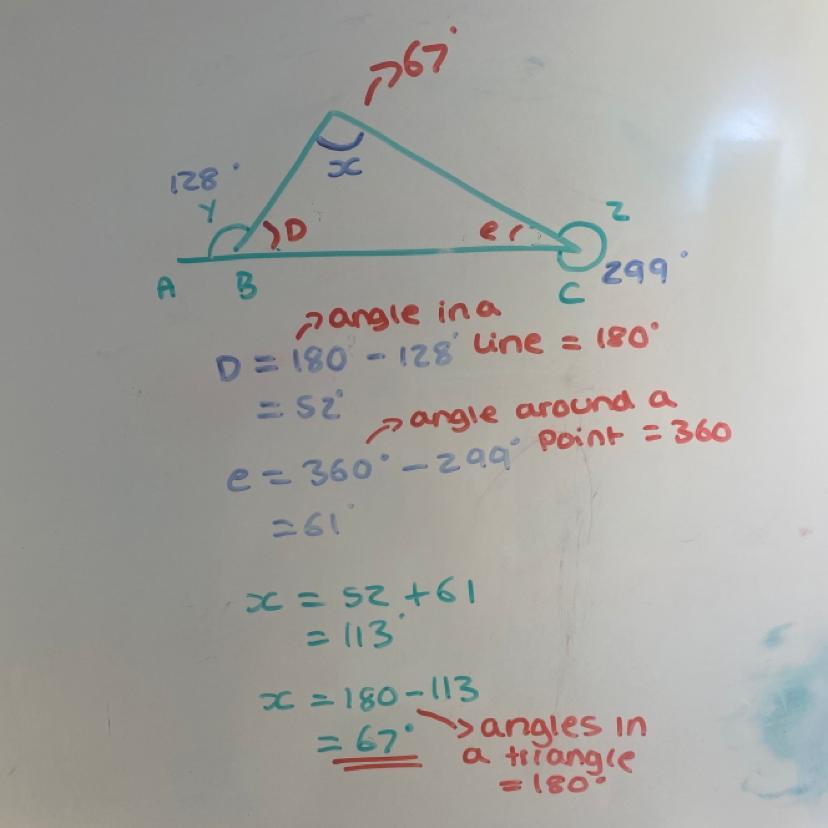 67°
x
128°
Y
D
e
Z
A
B
C
299°
angle in a
line = 180°
D = 180° - 128°
= 52°
angle around a
point = 360
e = 360° - 299°
= 61°
x = 52 + 61
= 113°
x = 180 - 113
= 67°
angles in
a triangle
= 180°